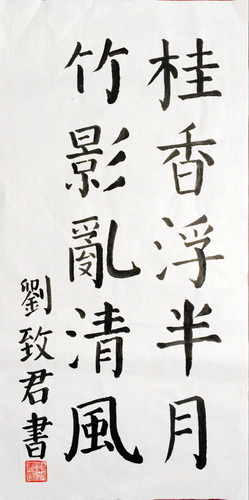 桂香浮半月
竹影亂清風
劉致君書